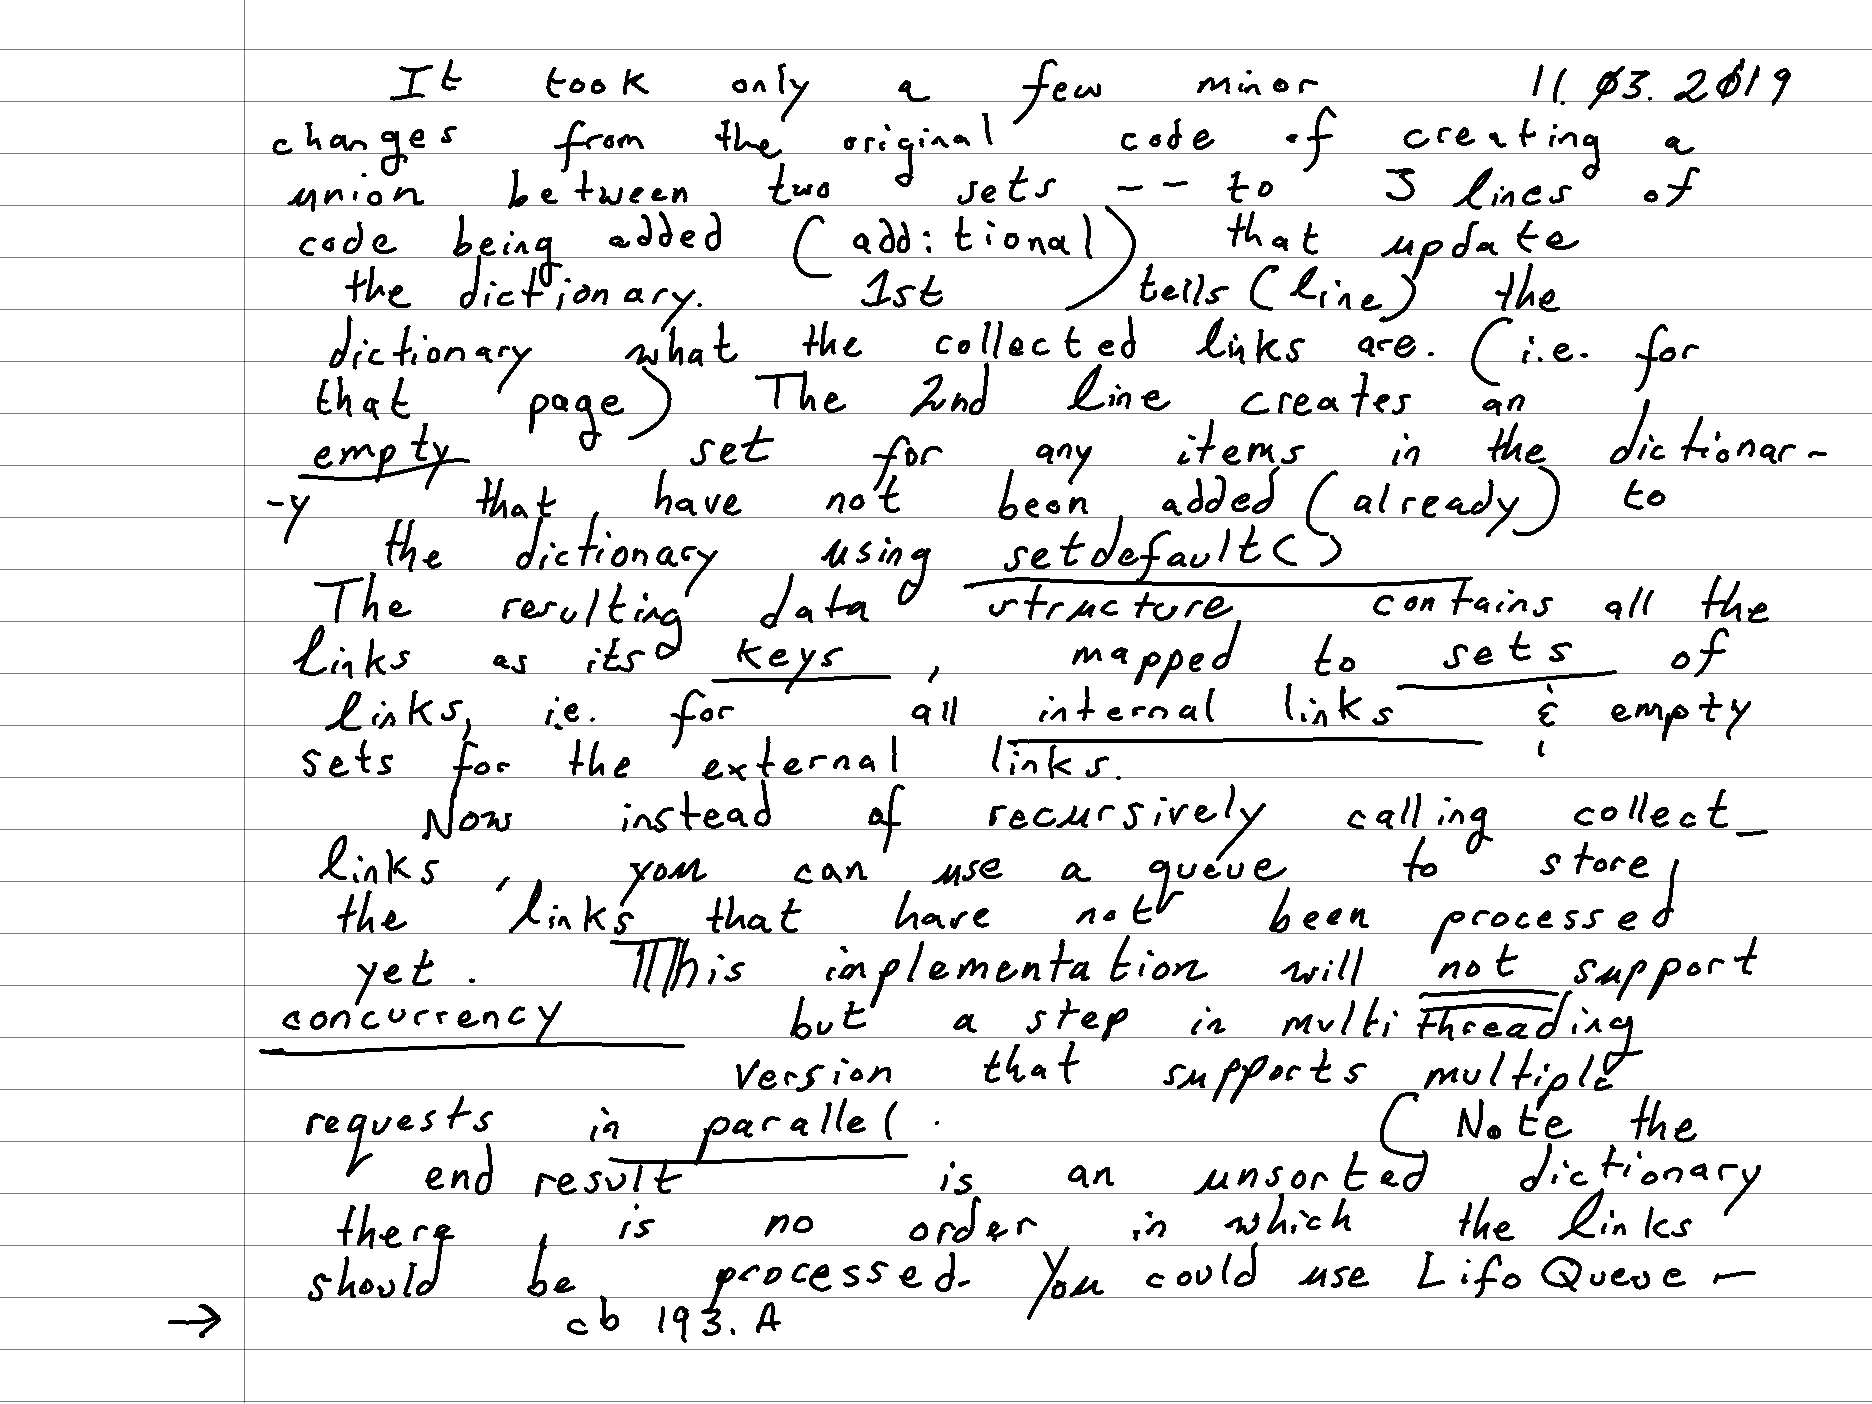 It took only a few minor 11.03.2019
changes from the original code of creating a
union between two sets -- to 3 lines of
code being added (additional) that update
the dictionary. 1st tells (line) the
dictionary what the collected links are. (i.e. for
that page) The 2nd line creates an
empty set for any items in the dictionar-
-y that have not been added (already) to
the dictionary using setdefault()
The resulting data structure contains all the
links as its keys, mapped to sets of
links, i.e. for all internal links & empty
sets for the external links.
Now instead of recursively calling collect_
links, you can use a queue to store
the links that have not been processed
yet. This implementation will not support
concurrency but a step in multithreading
version that supports multiple
requests in parallel. (Note the
end result is an unsorted dictionary
there is no order in which the links
should be processed. You could use LifoQueue -
→ cb 193.A